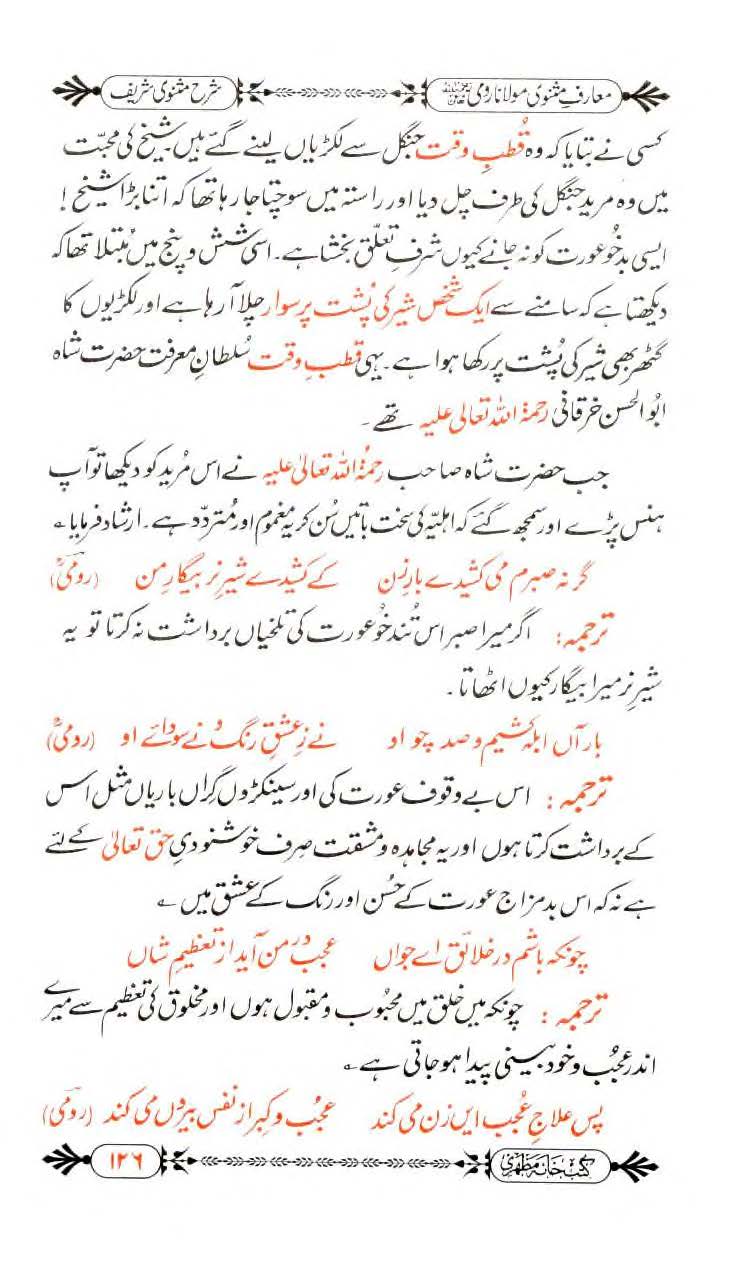 معارفِ مثنوی مولانا رومی شرح مثنوی شریف
کسی نے بتایا کہ وہ قُطبِ وقت جنگل سے لکڑیاں لینے گئے ہیں۔ شیخ کی محبّت
میں وہ مرید جنگل کی طرف چل دیا اور راستہ میں سوچتا جا رہا تھا کہ اتنا بڑا شیخ !
ایسی بدخُو عورت کو نہ جانے کیوں شرفِ تعلّق بخشا ہے۔ اسی شش و پنج میں مُبتلا تھا کہ
دیکھتا ہے کہ سامنے سے ایک شخص شیر کی پُشت پر سوار چلا آ رہا ہے اور لکڑیوں کا
گٹھر بھی شیر کی پُشت پر رکھا ہوا ہے۔ یہی قطبِ وقت سُلطانِ معرفت حضرت شاہ
ابُو الحسن خرقانی رحمۃ اللہ تعالیٰ علیہ تھے ۔
جب حضرت شاہ صاحب رحمۃُ اللہ تعالیٰ علیہ نے اس مُرید کو دیکھا تو آپ
ہنس پڑے اور سمجھ گئے کہ اہلیّہ کی سخت باتیں سُن کر یہ مغموم اور مُتردّد ہے۔ ارشاد فرمایا ؎
گر نہ صبرم می کشیدے بارِ زن کے کشیدے شیرِ نر بیگارِ من (رومیؒ)
ترجمہ : اگر میرا صبر اس تُند خُو عورت کی تلخیاں برداشت نہ کرتا تو یہ
شیرِ نر میرا بیگار کیوں اٹھاتا ۔
بارِ آں ابلہ کشیم و صد چو او نے زِ عشقِ رنگ و نے سودائے او (رومیؒ)
ترجمہ : اس بے وقوف عورت کی اور سینکڑوں گِراں باریاں مثل اس
کے برداشت کرتا ہوں اور یہ مجاہدہ و مشقت صِرف خوشنودیِ حق تعالیٰ کے لئے
ہے نہ کہ اس بدمزاج عورت کے حُسن اور رنگ کے عشق میں ؎
چونکہ باشم در خلائق اے جواں عجب در من آید از تعظیمِ شاں
ترجمہ : چونکہ میں خلق میں محبُوب و مقبول ہوں اور مخلوق کی تعظیم سے میرے
اندر عجُب و خود بینی پیدا ہو جاتی ہے ؎
پس علاجِ عُجب ایں زن می کند عجُب و کبر از نفس بیروں می کند (رومیؒ)
کتب خانہ مظہری ۱۲۶